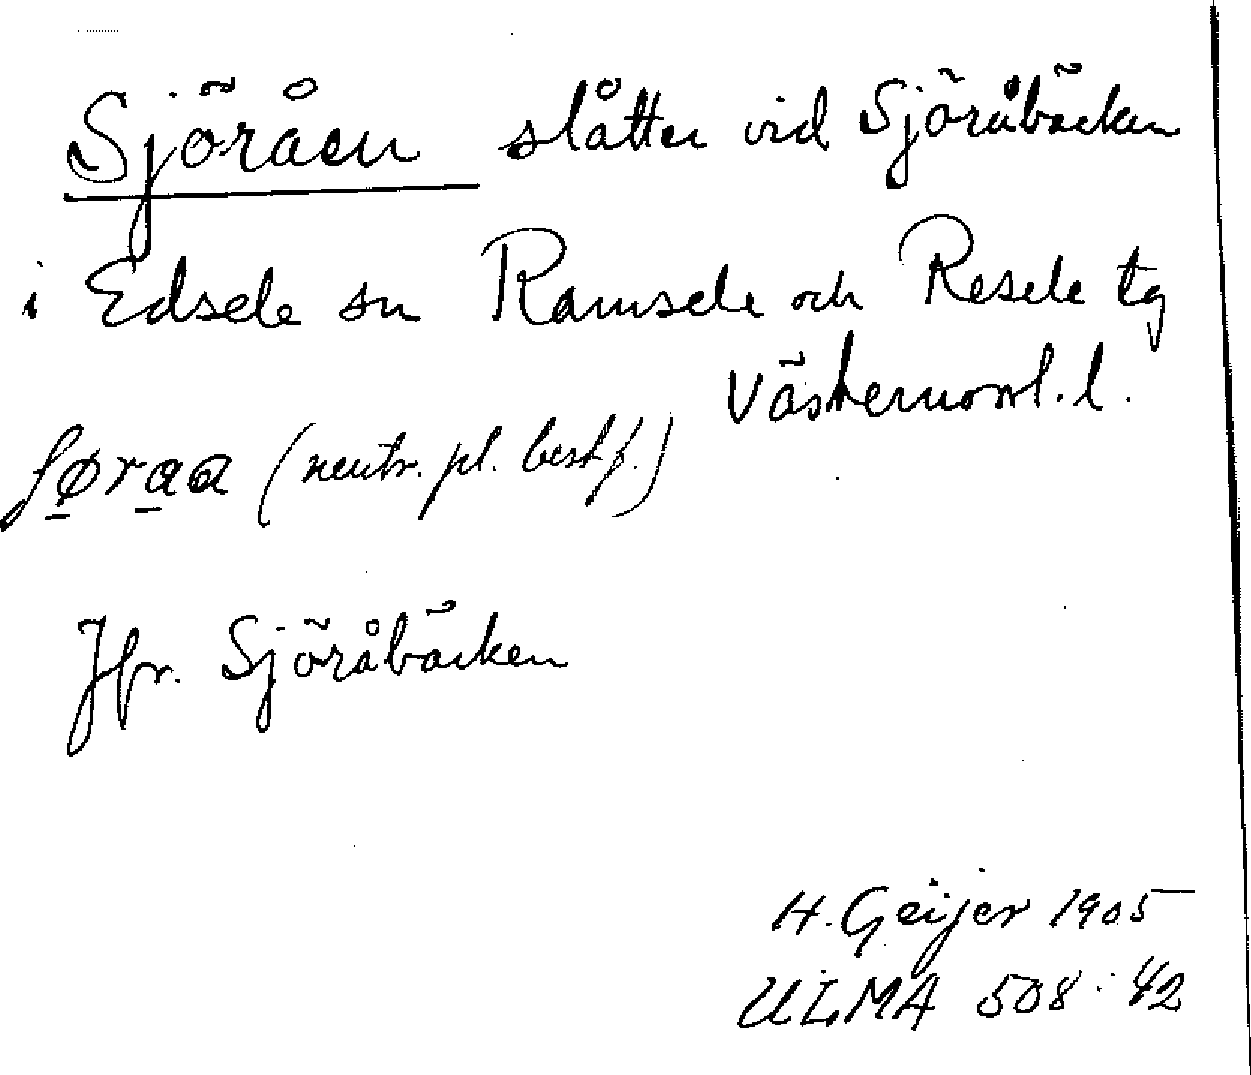 Sjöråen slåtter vid Sjöråbäcken
i Edsele sn Ramsele och Resele tg
Västernorrl. l.
ʃø̱ra̱a (neutr. pl. best f.)
Jfr. Sjöråbäcken
H. Geijer 1905
ULMA 508:42